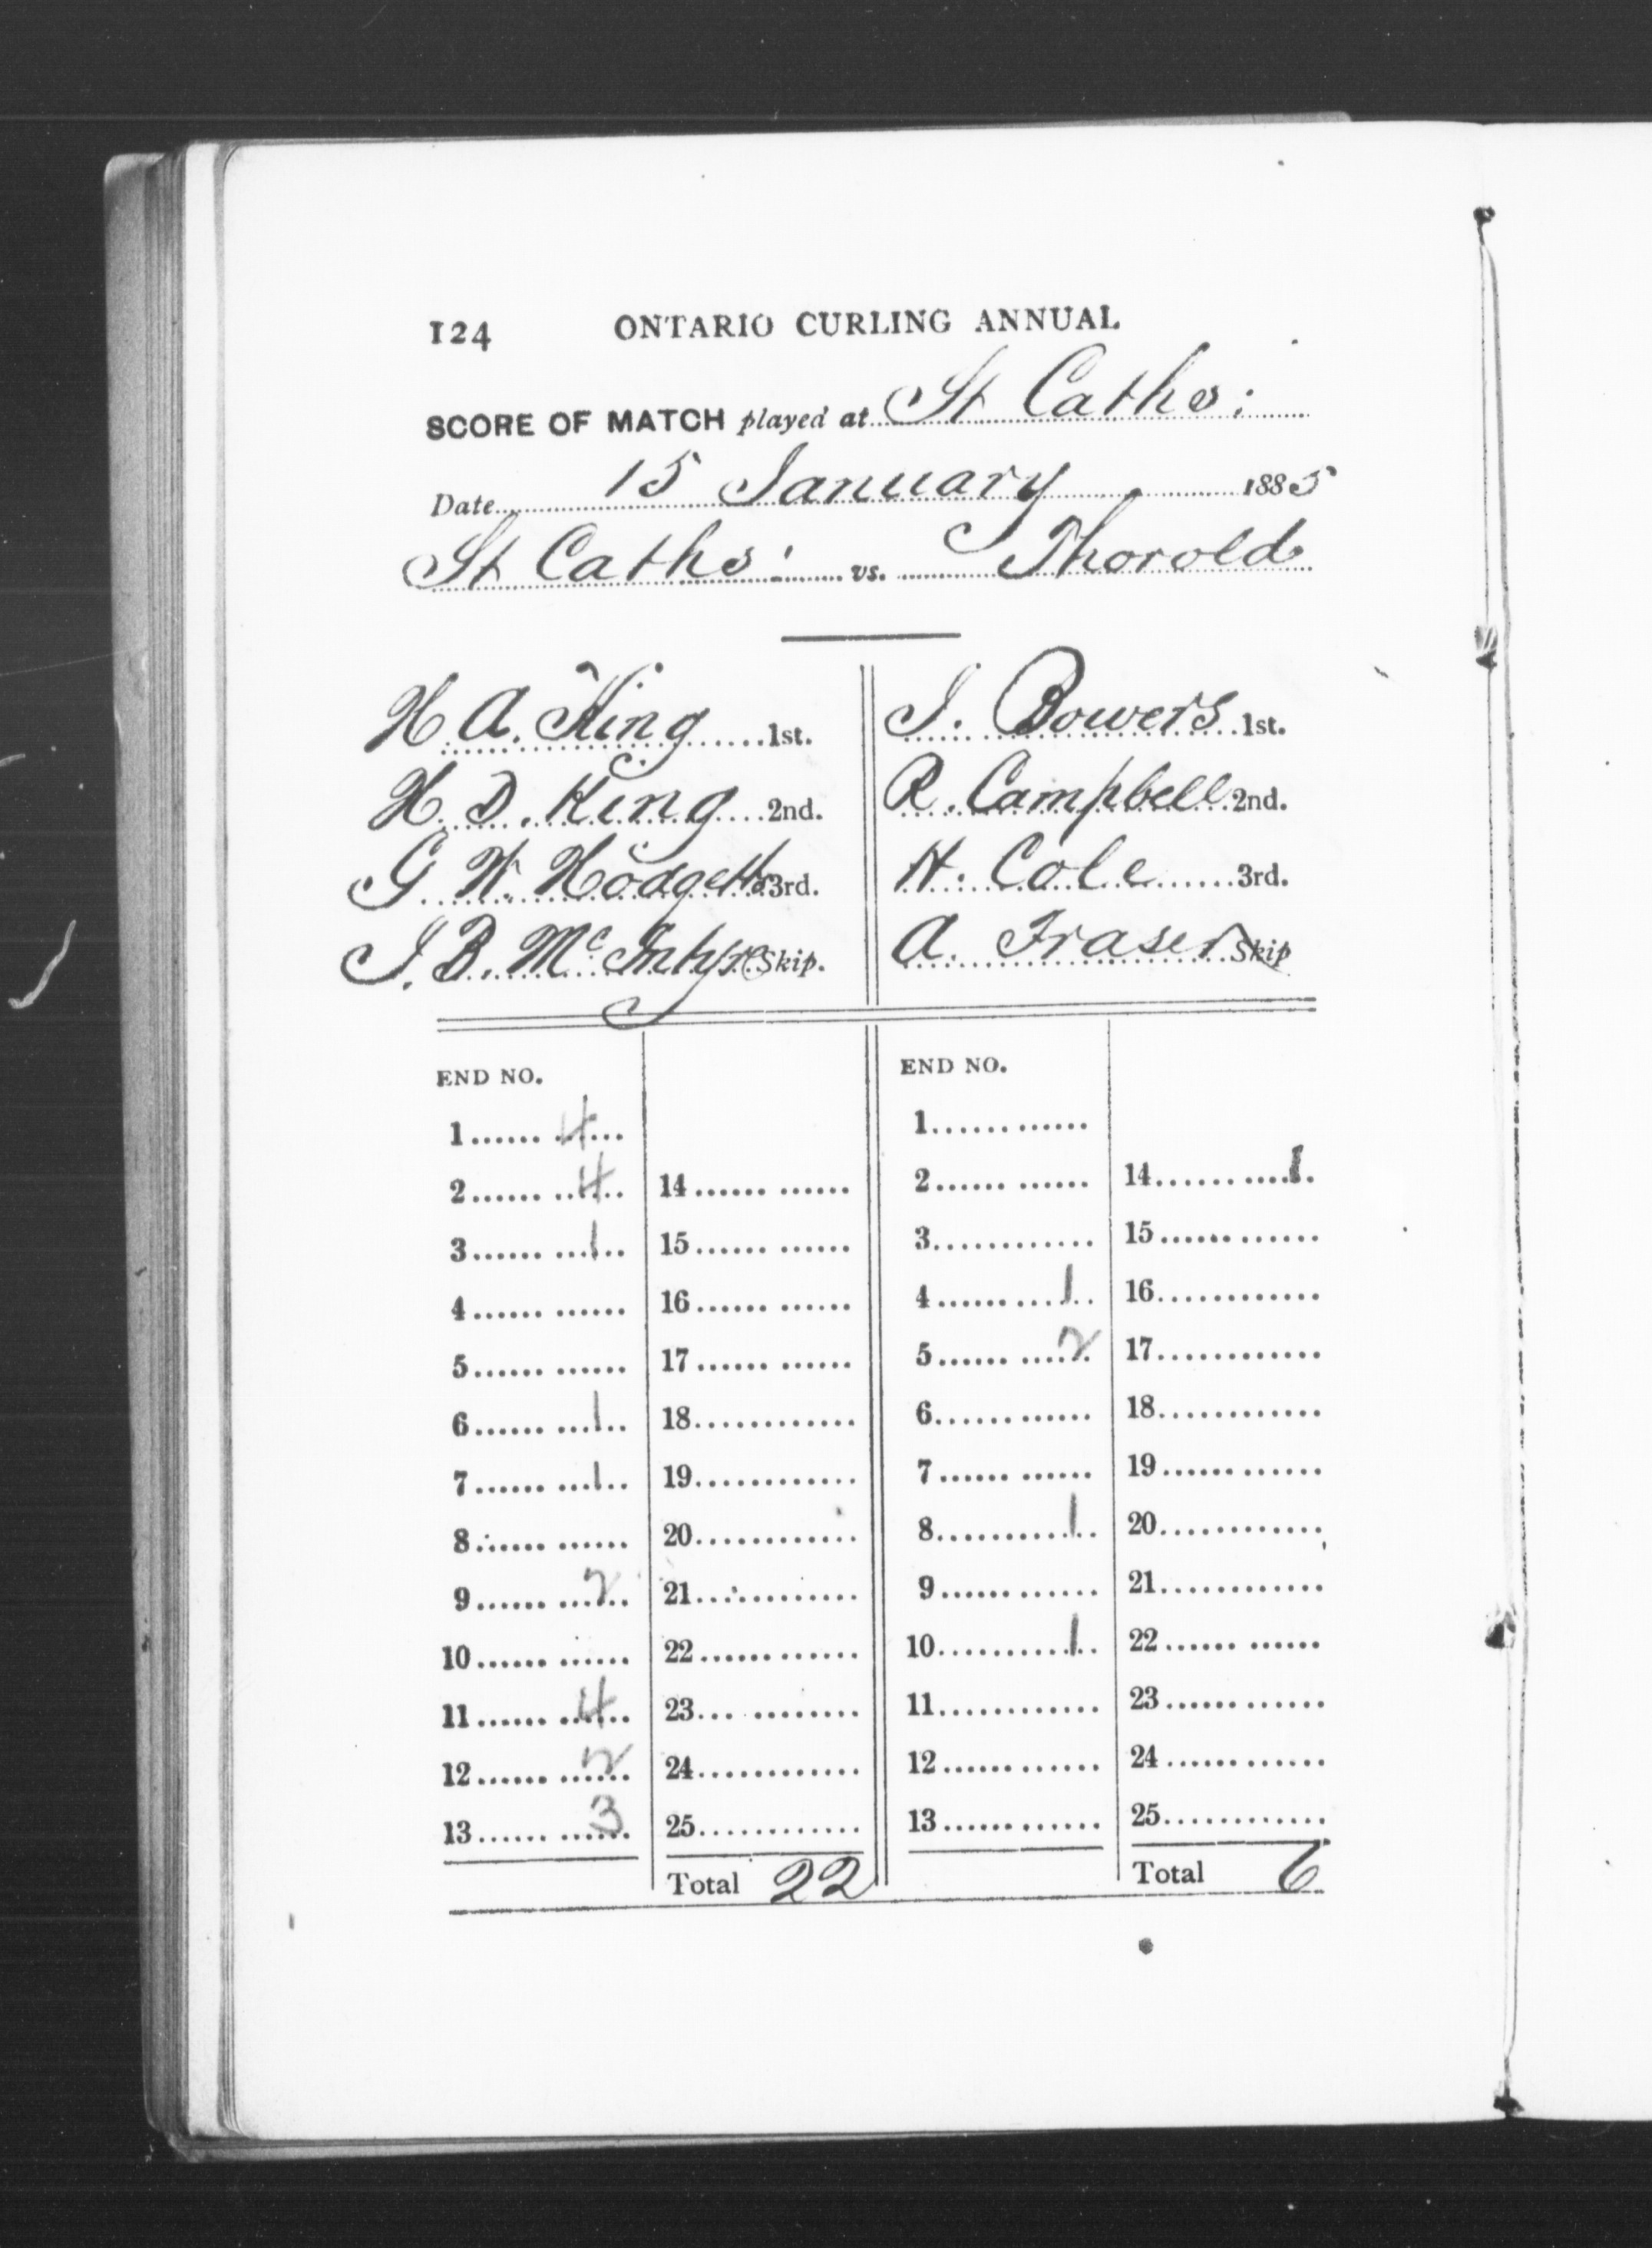 124 ONTARIO CURLING ANNUAL
SCORE OF MATCH played at St Caths:
Date 15 January 1885
St Caths: vs. Thorold
H A. King 1st. J. Bowers 1st.
H. D. King 2nd. R. Campbell 2nd.
G W. Hodgetts 3rd. H. Cole 3rd.
J. B. McIntyre Skip. A. Fraser Skip
END NO. END NO.
1 4 1
2 4 14 2 14 1
3 1 15 3 15
4 16 4 1 16
5 17 5 2 17
6 1 18 6 18
7 1 19 7 19
8 20 8 1 20
9 2 21 9 21
10 22 10 1 22
11 4 23 11 23
12 2 24 12 24
13 3 25 13 25
Total 22 Total 6